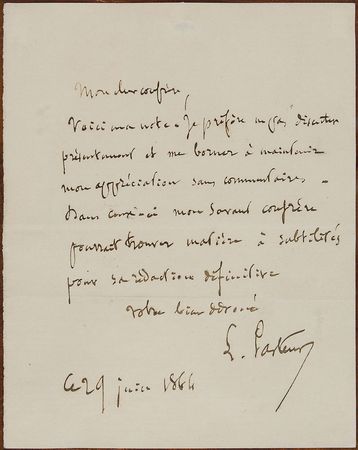 Mon cher confrère,
Voici ma note. Je préfère ne pas discuter
présentement et me borner à maintenir
mon appréciation sans commentaires.
Dans ceux-ci mon savant confrère
pourrait trouver matière à subtilités
pour sa rédaction définitive
Votre bien dévoué
L. Pasteur
Ce 29 juin 1864